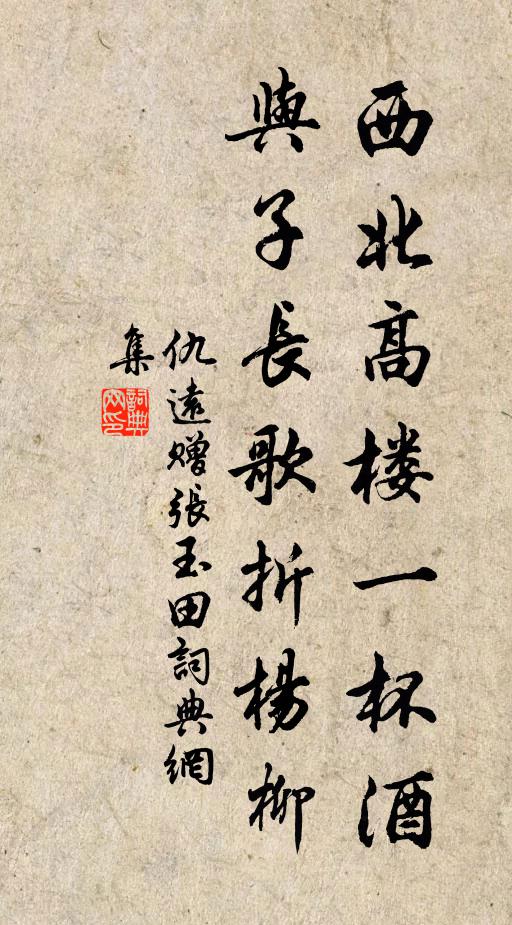 西北高楼一杯酒
與子長歌折楊柳
仇遠赠張玉田詞典網
集
詞典網印